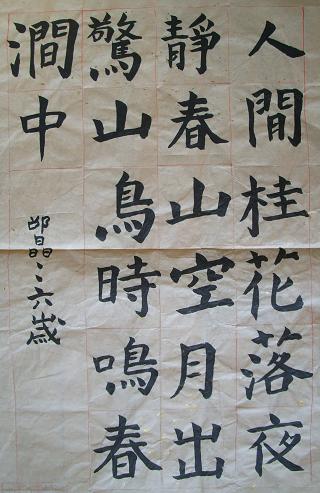 人間桂花落夜
靜春山空月出
驚山鳥時鳴春
澗中
邵晶晶六歲